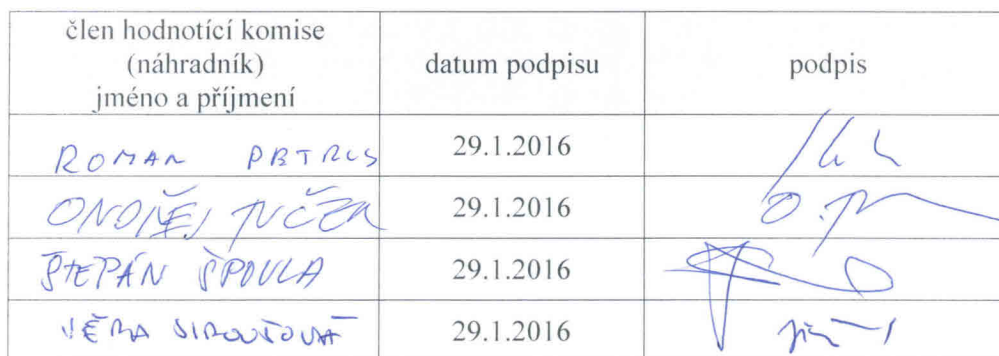 člen hodnotící komise
(náhradník)
jméno a příjmení
datum podpisu
podpis
ROMAN PETRUS 29.1.2016
ONDŘEJ 29.1.2016
ŠTEPÁN ŠPOULA 29.1.2016
VĚRA SIROUŠOVÁ 29.1.2016